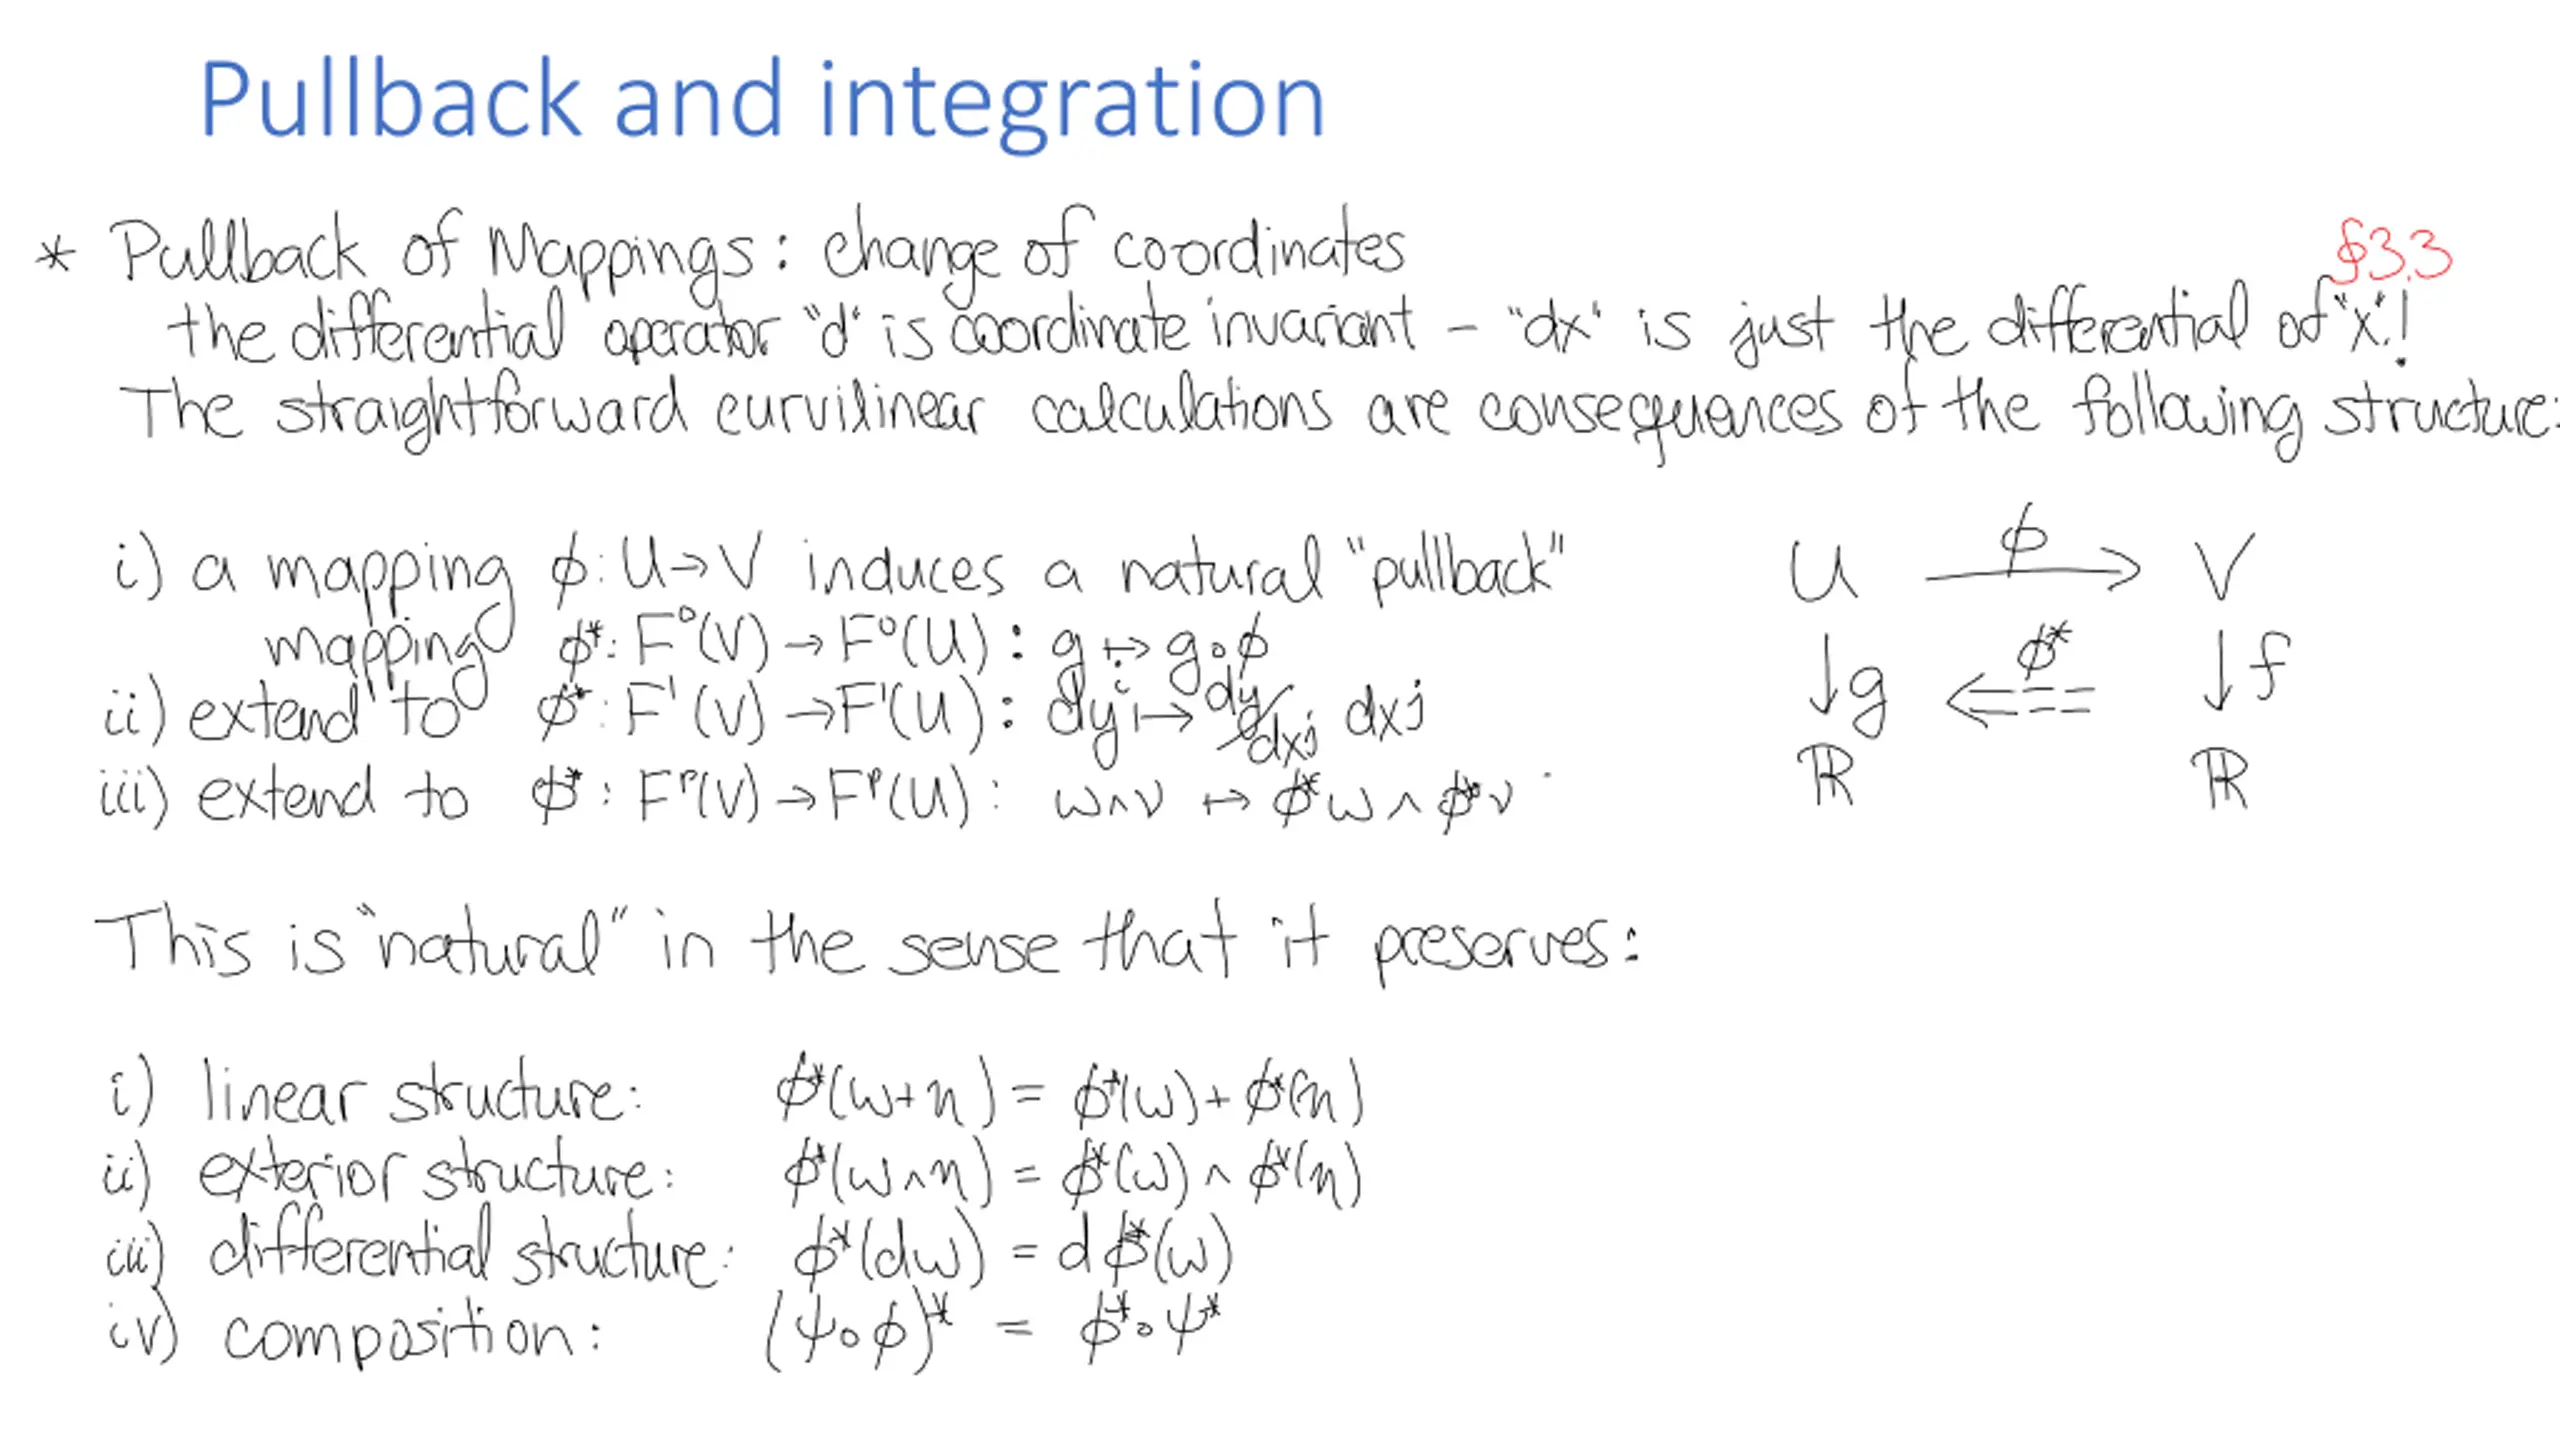 Pullback and integration
* Pullback of Mappings: change of coordinates
§3.3
the differential operator "d" is coordinate invariant – "dx" is just the differential of "x"!
The straightforward curvilinear calculations are consequences of the following structure:
i) a mapping ϕ: U→V induces a natural "pullback"
mapping ϕ*: F⁰(V) → F⁰(U) : g ↦ g∘ϕ
ii) extend to ϕ*: F¹(V) → F¹(U) : dyⁱ ↦ dyⁱ/dxʲ dxʲ
iii) extend to ϕ*: Fᵖ(V) → Fᵖ(U) : ω∧ν ↦ ϕ*ω ∧ ϕ*ν
U ϕ→ V
↓g ϕ* ⇐== ↓f
ℝ ℝ
This is "natural" in the sense that it preserves:
i) linear structure: ϕ*(ω+η) = ϕ*(ω) + ϕ*(η)
ii) exterior structure: ϕ*(ω∧η) = ϕ*(ω) ∧ ϕ*(η)
iii) differential structure: ϕ*(dω) = dϕ*(ω)
iv) composition: (ψ∘ϕ)* = ϕ*∘ψ*